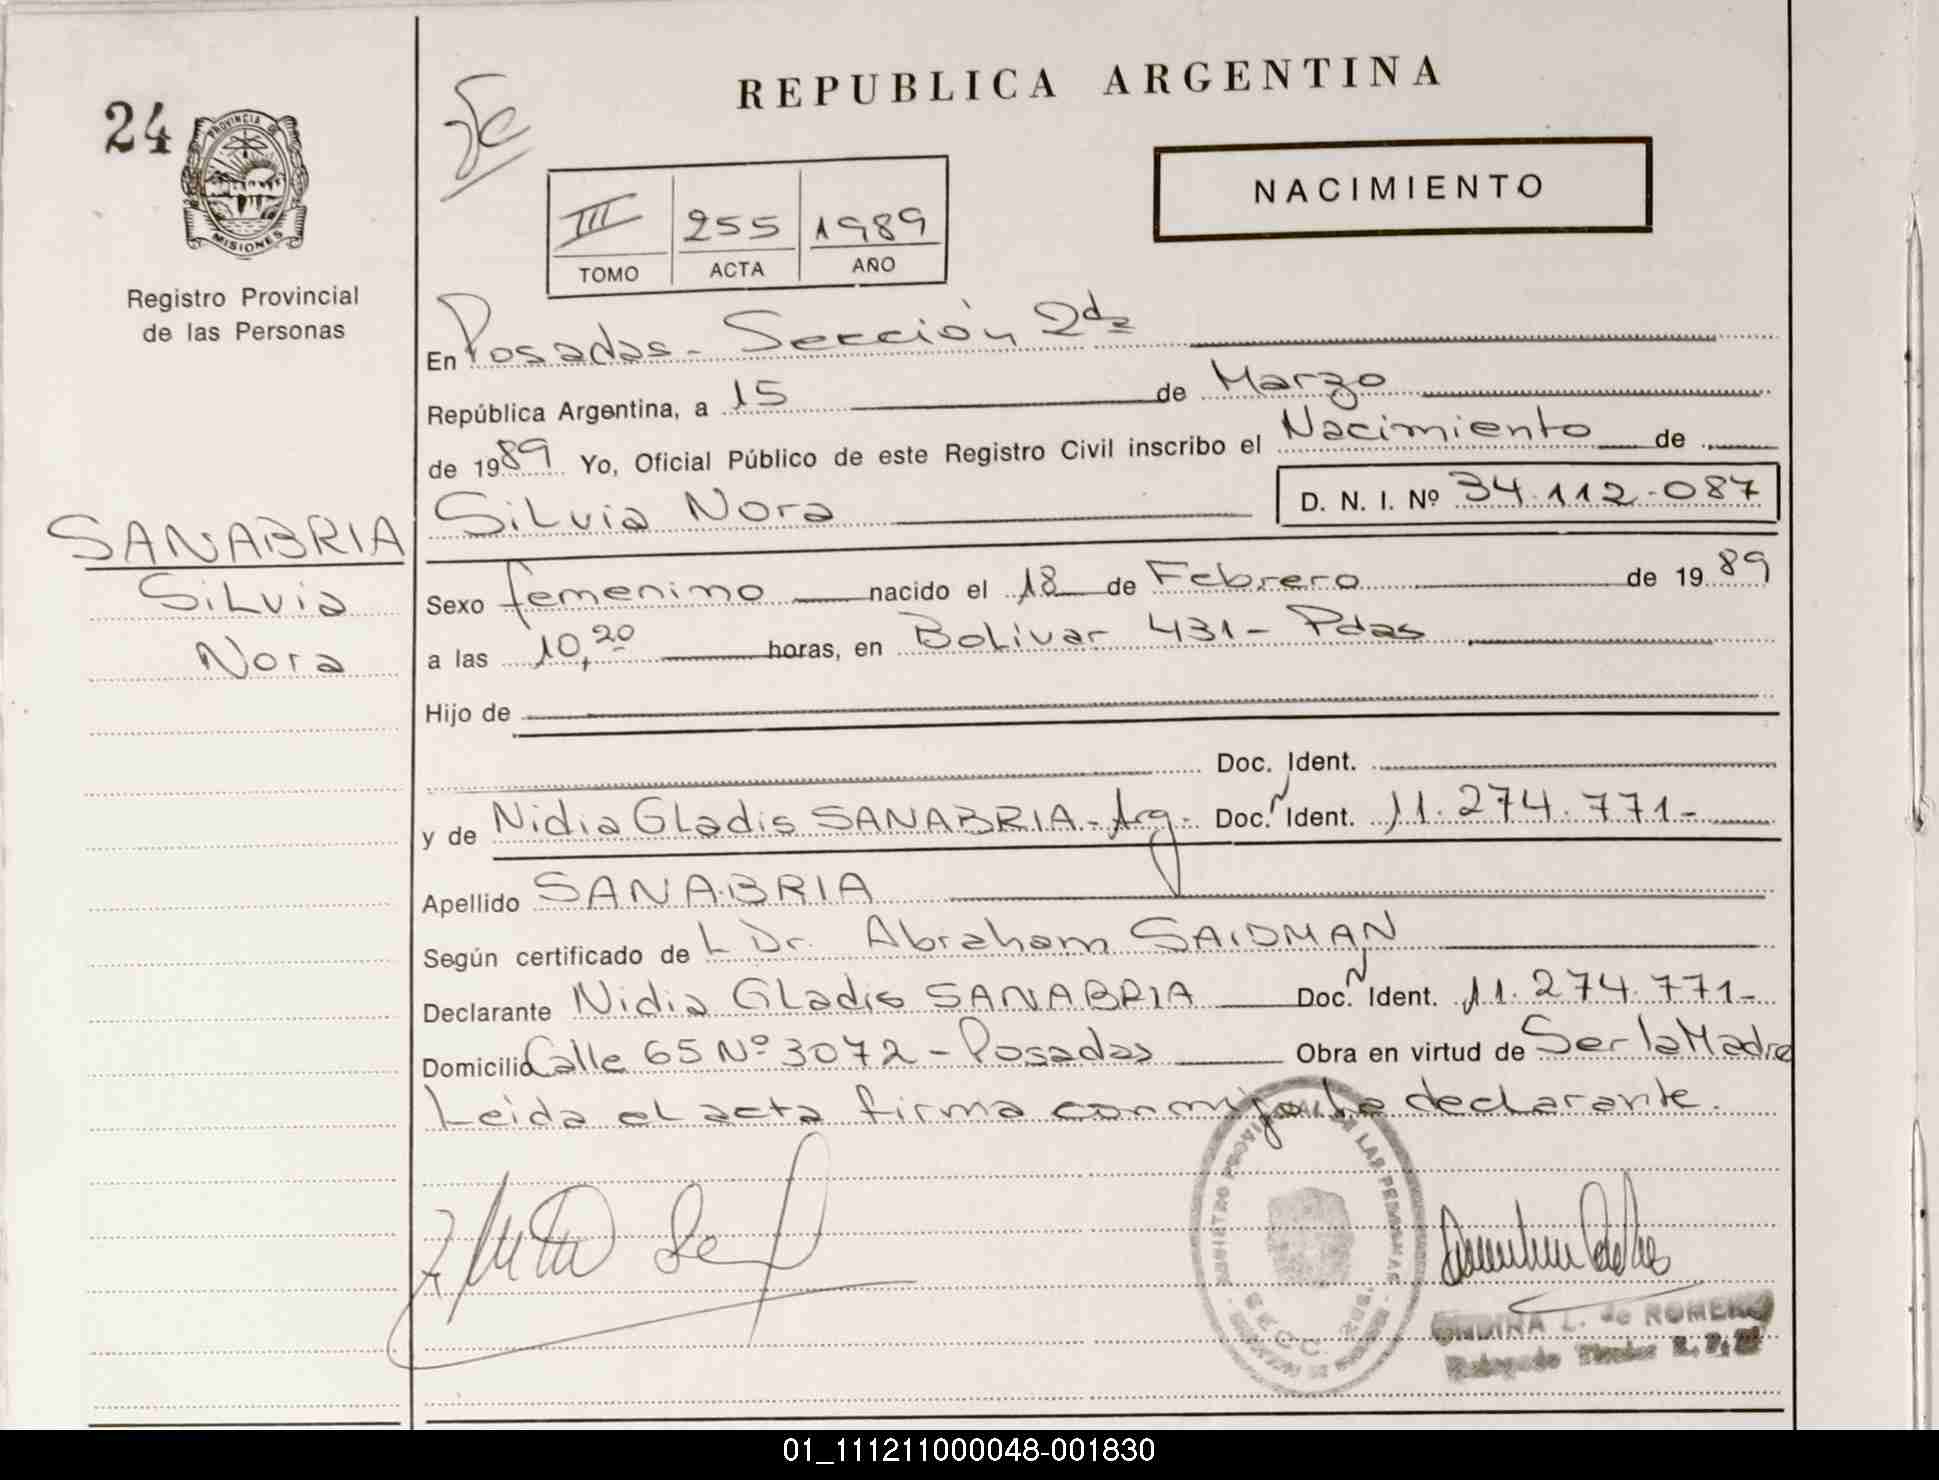 REPUBLICA ARGENTINA
24
PROVINCIA DE
MISIONES
Registro Provincial
de las Personas
NACIMIENTO
III 255 1989
TOMO ACTA AÑO
En Posadas - Sección 2da
República Argentina, a 15 de Marzo
de 1989 Yo, Oficial Público de este Registro Civil inscribo el Nacimiento de
Silvia Nora D. N. I. Nº 34.112.087
SANABRIA
Silvia
Nora
Sexo femenino nacido el 18 de Febrero de 1989
a las 10,20 horas, en Bolivar 431 - Pdas
Hijo de
Doc. Ident.
y de Nidia Gladis SANABRIA - Arg - Doc. Ident. 11.274.771-
Apellido SANABRIA
Según certificado de L Dr. Abraham SAIDMAN
Declarante Nidia Gladis SANABRIA Doc. Ident. 11.274.771-
Domicilio Calle 65 Nº 3072 - Posadas Obra en virtud de Ser la Madre
Leida el acta firma conmigo la declarante.
REGISTRO PROVINCIAL DE LAS PERSONAS
L. de ROMERO
01_111211000048-001830